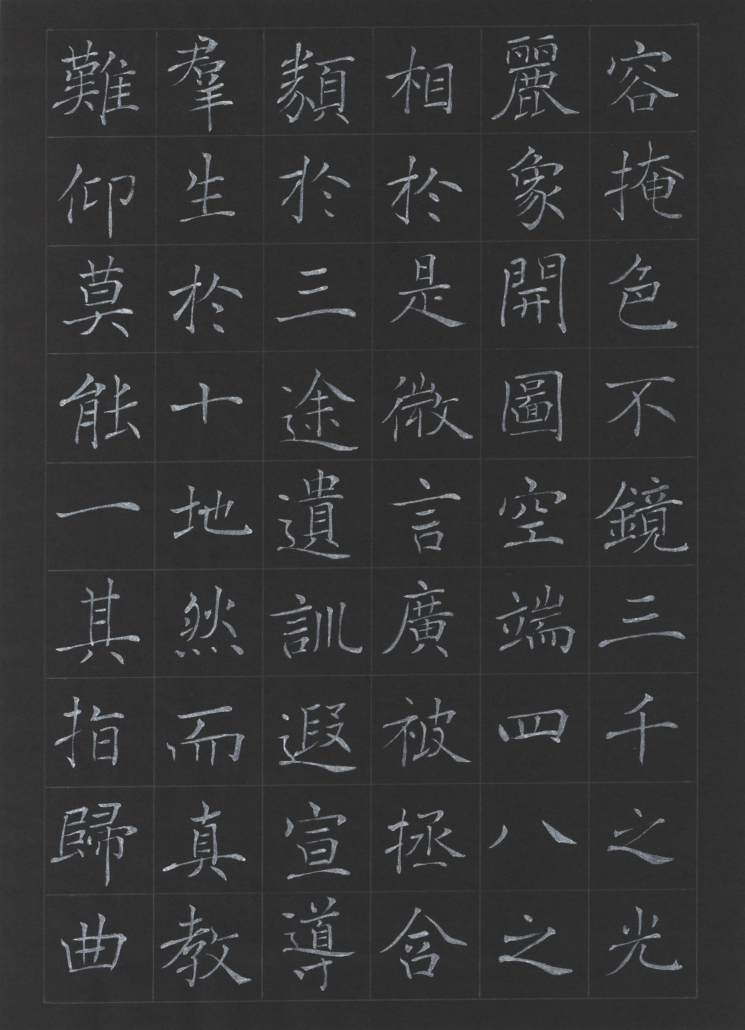 容掩色不鏡三千之光
麗象開圖空端四八之
相於是微言廣被拯含
類於三途遺訓遐宣導
羣生於十地然而真教
難仰莫能一其指歸曲